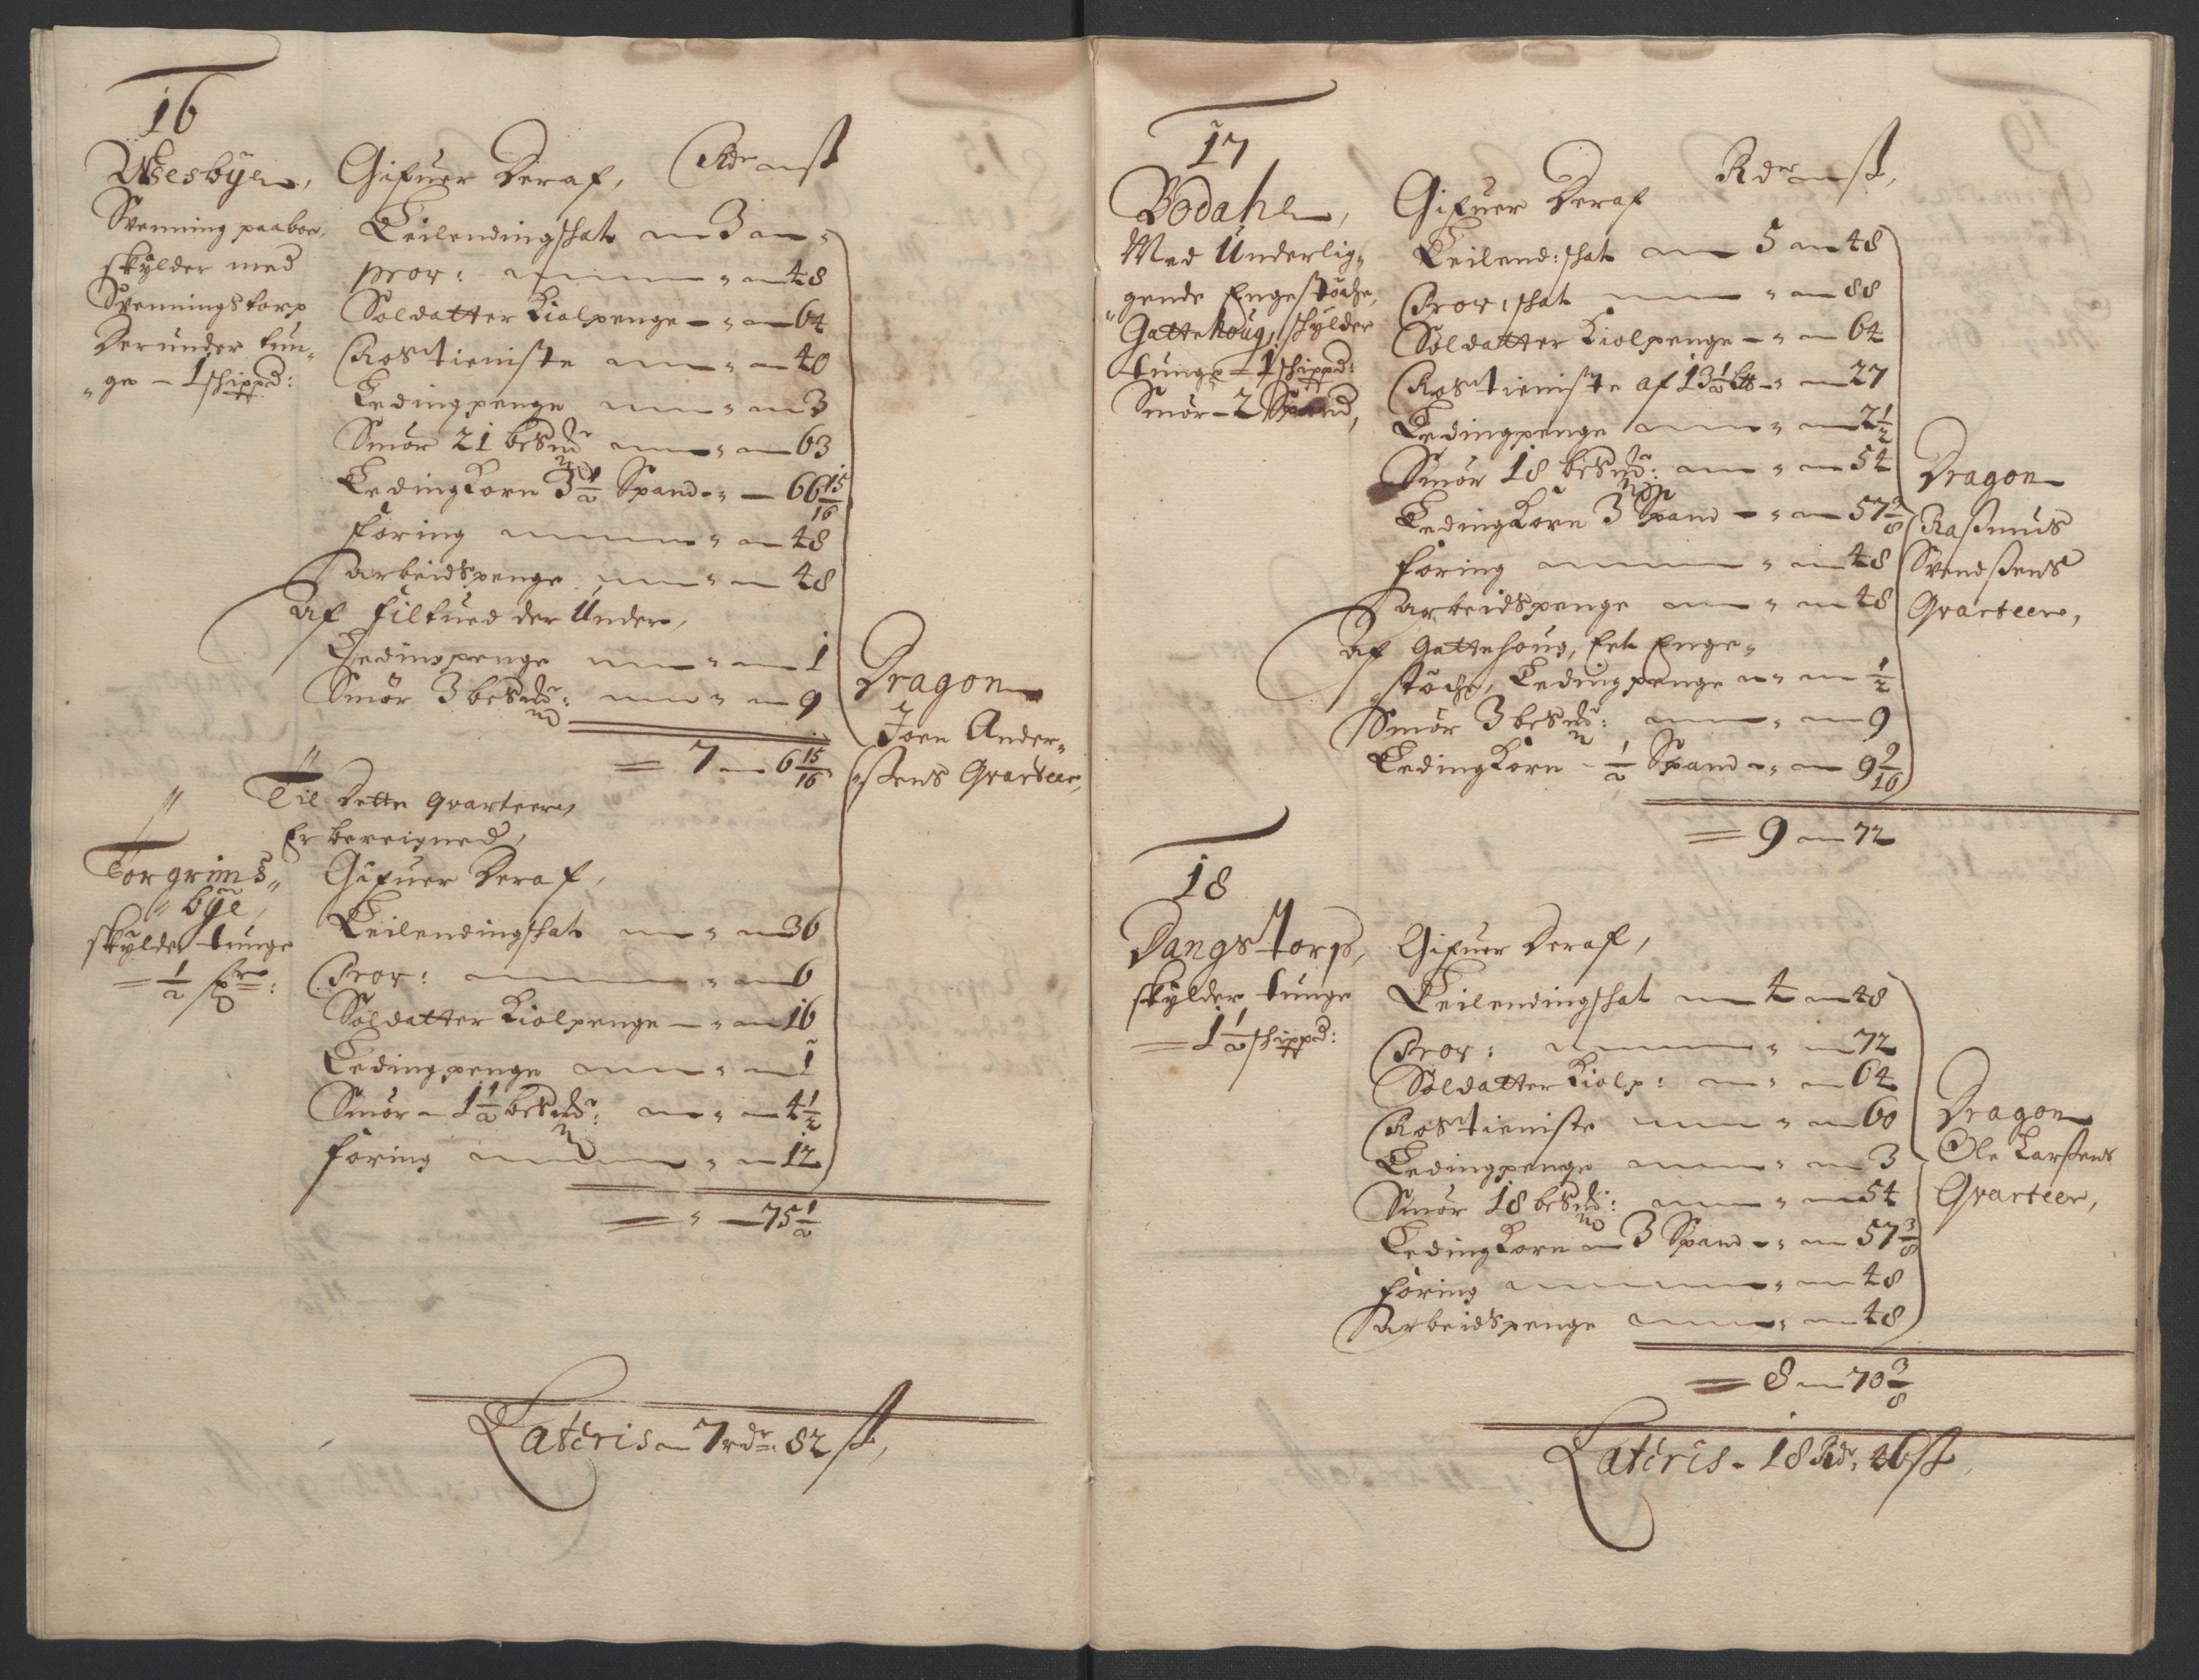 16
Wesbyen,
Svenning paaboer,
skylder med
Svenningstorp
Derunder tun-
ge - 1 schippd:
Gifuer Deraf, Rdr ß
Leilendingschat 3 "
prov: " 48
Soldatter Kiolpenge " 64
Rostieniste " 40
Ledingpenge " 3
Smör 21 besmdr " 63
Ledingkorn 3 1/2 Spand " 66 15/16
föring " 48
arbeidspenge " 48
Af Filtued der Under,
Ledingpenge " 1
Smör 3 besmdr: " 9
= 7 6 15/16
Dragon
Joen Ander-
ßens Qvarteer,
Til Dette Qvarteer,
Er bereigned,
Torgrims-
bye,
skylder tunge
= 1/2
Gifuer Deraf,
Leilendingschat " 36
Prov: " 6
Soldatter Kiolpenge " 16
Ledingpenge " 1
Smör 1 1/2 besmdr: " 4 1/2
föring " 12
= " 75 1/2
Lateris 7 rdr: 82 ß,
17
Bodahl,
Med Underlig-
gende Engestöche,
Gattehoug, schylder
tunge - 1 schippd:
Smör - 2 Spand,
Gifuer Deraf Rdr ß,
Leilend: schat 5 48
Prov: schat " 88
Soldatter Kiolpenge " 64
Rostieniste af 13 1/2 " 27
Ledingpenge " 2 1/2
Smör 18 besmdr: " 54
Ledingkorn 3 Spand " 57 3/8
föring " 48
arbeidspenge " 48
Af Gattehoug, Eet Enge-
stöche, Ledingpenge " 1/2
Smör 3 besmdr: " 9
Ledingkorn - 1/2 Spand " 9 9/16
= 9 72
Dragon
Raßmus
Svendßens
Qvarteer,
18
Dangstorp,
skylder tunge
= 1 1/2 schippd:
Gifuer Deraf,
Leilendingschat 4 48
Prov: " 72
Soldatter Kiolp: " 64
Rostieniste " 60
Ledingpenge " 3
Smör 18 besmdr: " 54
Ledingkorn 3 Spand " 57 3/8
föring " 48
arbeidspenge " 48
= 8 70 3/8
Dragon
Ole Larßens
Qvarteer,
Lateris - 18 Rdr: 46 ß,